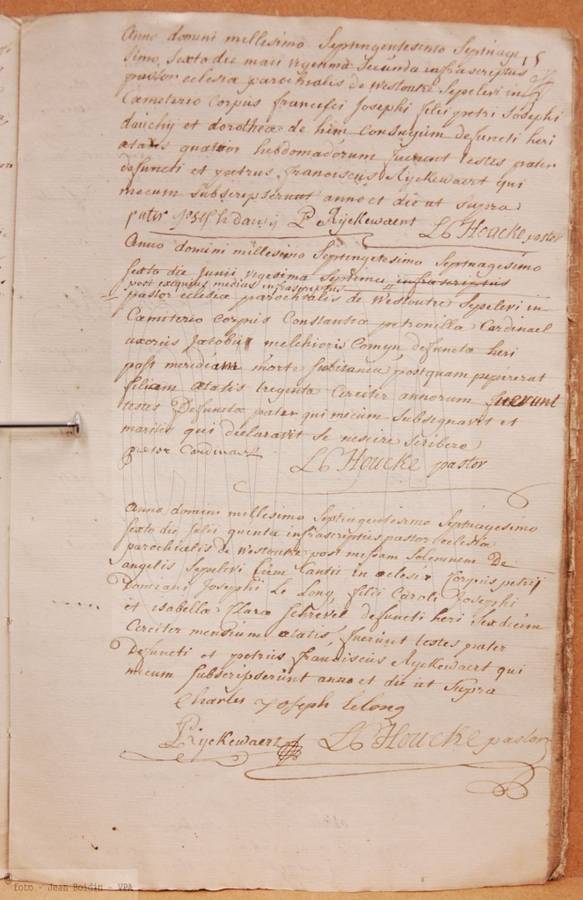 Anno domini millesimo Septingentesimo Septuage 15
simo, Sexto die maii vigesima Secunda infrascriptus
pastor eclesiæ parochialis de Westoutre Sepelevi in
Cæmiterio Corpus francisci Josephi filii petri Josephi
dauchy et dorotheæ de him Consugum defuncti heri
ætatis quatuor hebdomadorum fuerunt testes pater
defuncti et petrus franciscus Ryckewaert qui
mecum Subscripserunt anno et die ut supra
P Ryckewaert L C Houcke pastor
Anno domini millesimo Septingetesimo Septuagesimo
Sexto die Junii vigesima Septima infrascriptus
post exequias medias infrascriptus
pastor eclesiæ parochialis de Westoutre Sepelevi in
Cæmiterio corpus Constantiæ petronilla Cardinael
uxoris Jacobi melchioris Comyn defuncta heri
past meridiem morte Subitanea postquam pepererat
filiam ætatis trigenta Circiter annorum fuerunt
testes Defunctæ pater qui mecum Subsignavit et
maritus qui declaravit se nescire Scribere
petor Cardinael L C Houcke pastor
Anno domini millesimo Septingentesimo Septuagesimo
Sexto die Julii quinta infrascriptus pastor eclesiæ
parochialis de Westoutre post missam Solemnem De
angelis Sepulevi Cum Cantu in eclesia Corpus petri
Damiani Josephi Le Long, filii Caroli Josephi
et isabella Clara Schrevel defuncti heri Sexdicim
Circiter mensium ætatis, fuerunt testes pater
Defuncti et petrus franciscus Ryckewaert qui
mecum Subscripserunt anno et die ut Supra
Charles Joseph Lelong
P Ryckewaert L C Houcke pastor
foto - Jean Boidin - VPA